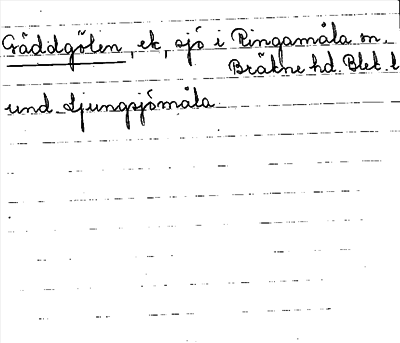 Gäddgölen, ek, sjö i Ringamåla sn.
Bräkne hd. Blek. l
und. Ljungsjömåla